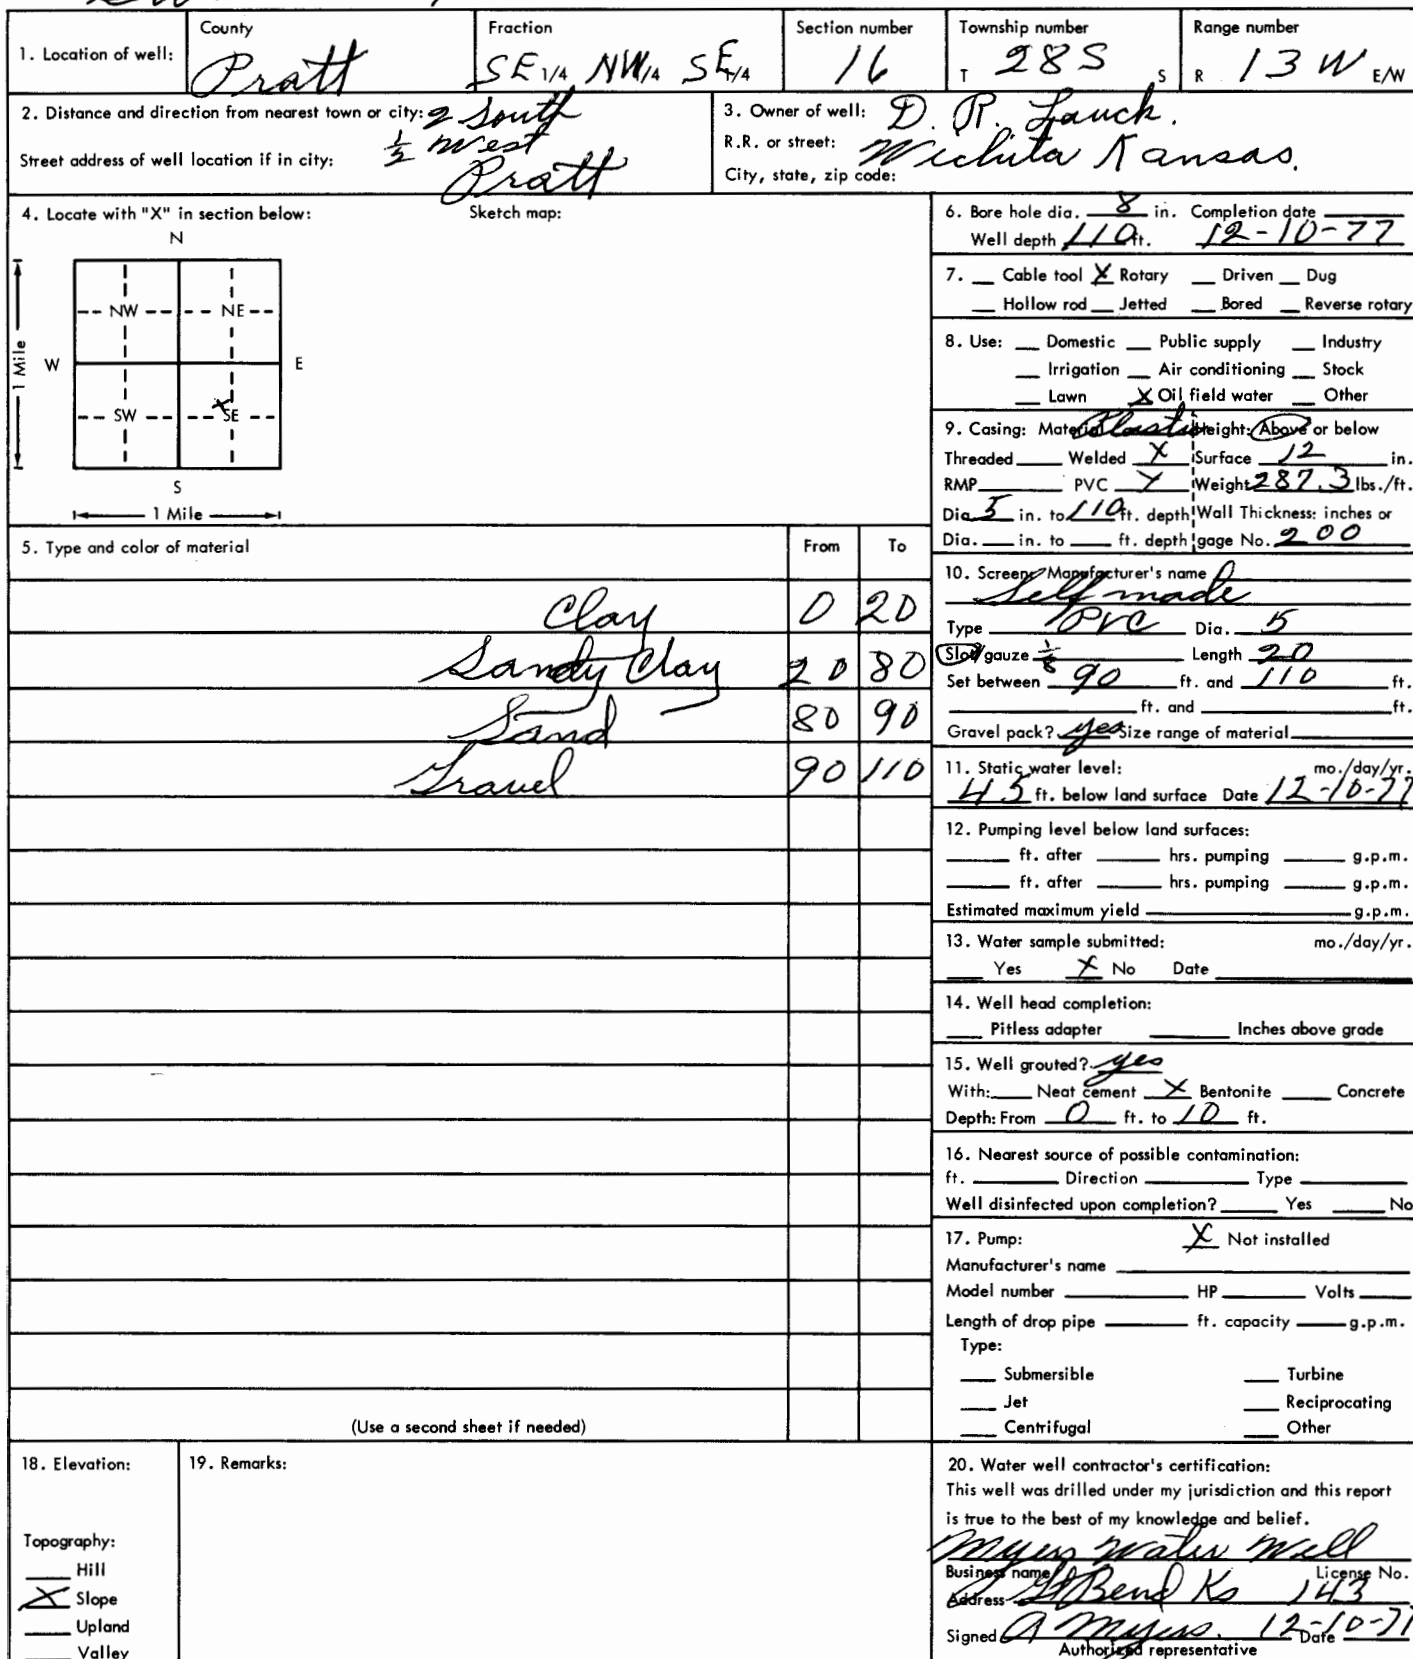 County Fraction Section number Township number Range number
1. Location of well: Pratt SE 1/4 NW 1/4 SE 1/4 16 T 28S S R 13 W E/W
2. Distance and direction from nearest town or city: 2 South
1/2 West
Street address of well location if in city:
Pratt
3. Owner of well: D. R. Lauck.
R.R. or street:
Wichita Kansas.
City, state, zip code:
4. Locate with "X" in section below: Sketch map:
N
NW NE
W E
1 Mile
SW X SE
S
1 Mile
5. Type and color of material From To
Clay 0 20
Sandy Clay 20 80
Sand 80 90
Gravel 90 110
(Use a second sheet if needed)
6. Bore hole dia. 8 in. Completion date
Well depth 110 ft. 12-10-77
7. __ Cable tool X Rotary __ Driven __ Dug
__ Hollow rod __ Jetted __ Bored __ Reverse rotary
8. Use: __ Domestic __ Public supply __ Industry
__ Irrigation __ Air conditioning __ Stock
__ Lawn X Oil field water __ Other
9. Casing: Material Plastic Height: Above or below
Threaded __ Welded X Surface 12 in.
RMP __ PVC X Weight 287.3 lbs./ft.
Dia. 5 in. to 110 ft. depth Wall Thickness: inches or
Dia. __ in. to __ ft. depth gage No. 200
10. Screen: Manufacturer's name
Self made
Type PVC Dia. 5
Slot/gauze 1/8 Length 20
Set between 90 ft. and 110 ft.
__ ft. and __ ft.
Gravel pack? yes Size range of material __
11. Static water level: mo./day/yr.
45 ft. below land surface Date 12-10-77
12. Pumping level below land surfaces:
__ ft. after __ hrs. pumping __ g.p.m.
__ ft. after __ hrs. pumping __ g.p.m.
Estimated maximum yield __ g.p.m.
13. Water sample submitted: mo./day/yr.
__ Yes X No Date __
14. Well head completion:
__ Pitless adapter __ Inches above grade
15. Well grouted? yes
With: __ Neat cement X Bentonite __ Concrete
Depth: From 0 ft. to 10 ft.
16. Nearest source of possible contamination:
ft. __ Direction __ Type __
Well disinfected upon completion? __ Yes __ No
17. Pump: X Not installed
Manufacturer's name __
Model number __ HP __ Volts __
Length of drop pipe __ ft. capacity __ g.p.m.
Type:
__ Submersible __ Turbine
__ Jet __ Reciprocating
__ Centrifugal __ Other
18. Elevation:
Topography:
__ Hill
X Slope
__ Upland
__ Valley
19. Remarks:
20. Water well contractor's certification:
This well was drilled under my jurisdiction and this report
is true to the best of my knowledge and belief.
Myers Water Well
Business name License No.
Address Gt Bend Ks 143
Signed A Myers. Date 12-10-77
Authorized representative